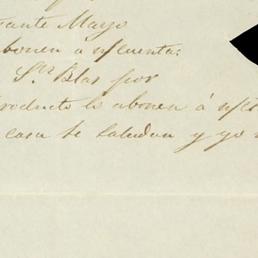 ante Mayo
abonen a n/cuenta:
Sr. Blas por
producto lo abonen á n/c
casa le saludan y yo